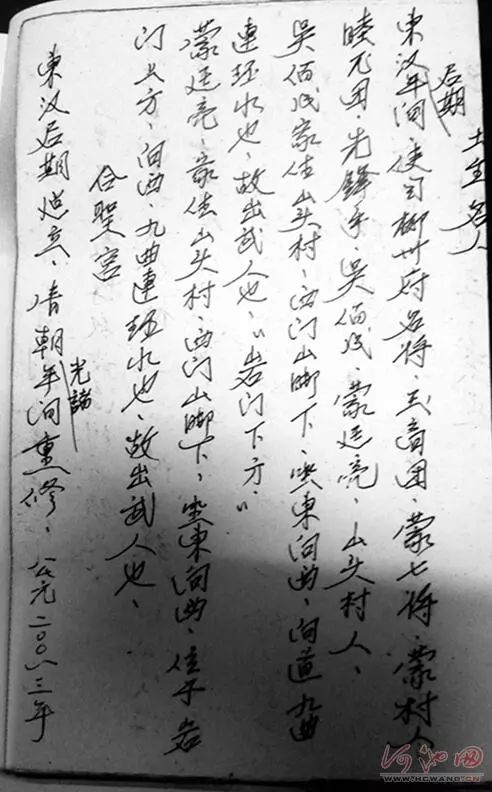 土主名人
后期
東汉年间、使司柳州府名将、玉音团、蒙七将、蒙村人
陆元团、先锋手、吴佰成、蒙廷亮、山头村人、
吴佰成家住山头村、西门山脚下、坐東向西、向道九曲
连环水也、故出武人也、"岩门下方、"
蒙廷亮、家住山头村、西门山脚下、坐東向西、位于岩
门上方、向西、九曲连环水也、故出武人也、
合聖宫
東汉后期造立、清朝年间重修、公元二00八三年
光諸
河池网
WWW.HCWANG.CN